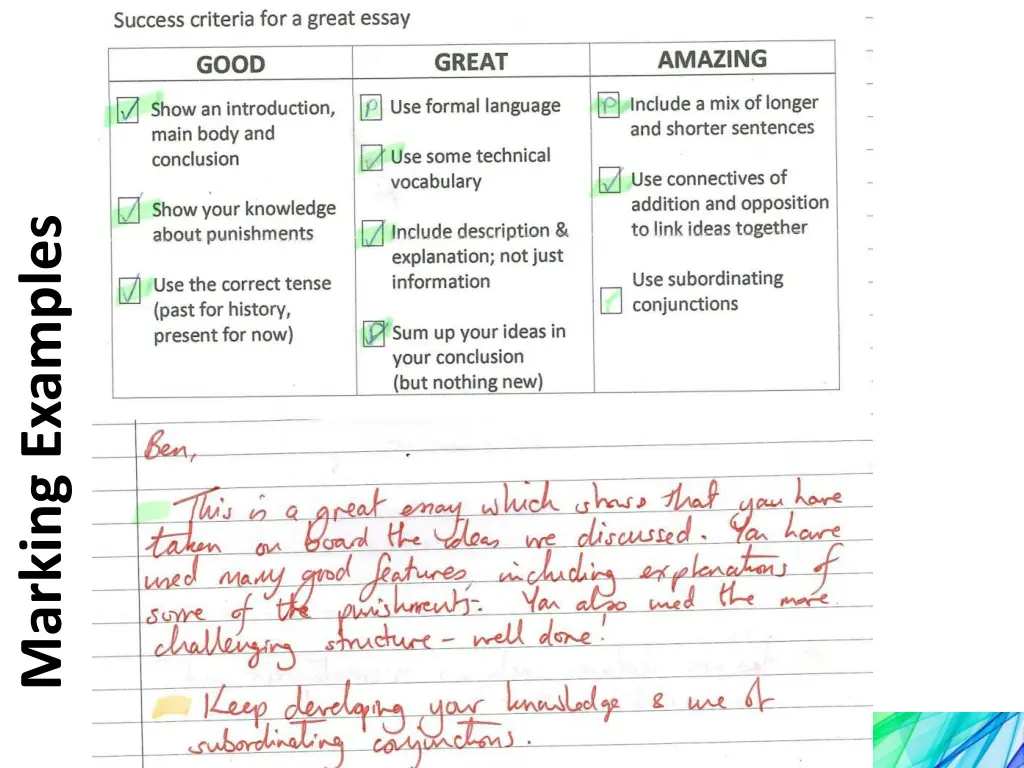 Success criteria for a great essay
GOOD
Show an introduction,
main body and
conclusion
Show your knowledge
about punishments
Use the correct tense
(past for history,
present for now)
GREAT
P Use formal language
Use some technical
vocabulary
Include description &
explanation; not just
information
P Sum up your ideas in
your conclusion
(but nothing new)
AMAZING
P Include a mix of longer
and shorter sentences
Use connectives of
addition and opposition
to link ideas together
Use subordinating
conjunctions
Marking Examples
Ben,
This is a great essay which shows that you have
taken on board the ideas we discussed. You have
used many good features, including explanations of
some of the punishments. You also used the more
challenging structure - well done!
Keep developing your knowledge & use of
subordinating conjunctions.